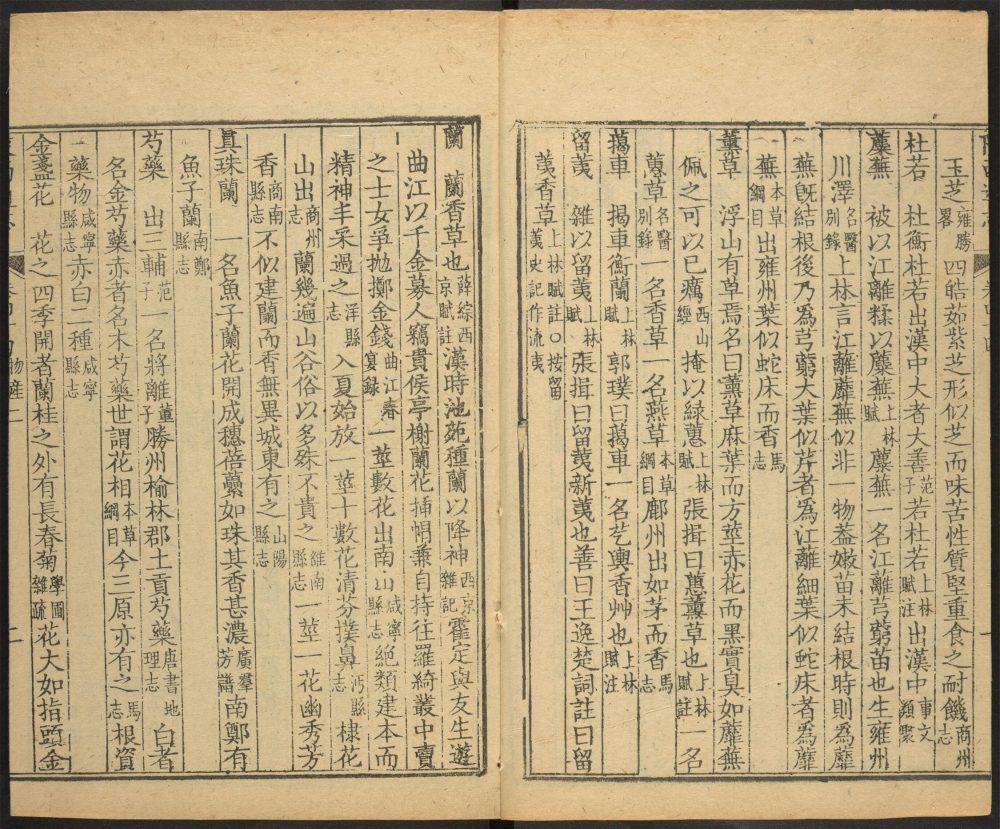 玉芝雍勝畧四皓茹紫芝形似芝而味苦性質堅重食之耐饑商州志
杜若　杜衡杜若出漢中大者大善范子若杜若上林賦注出漢中事文類聚
蘪蕪　被以江離糅以蘪蕪上林賦蘪蕪一名江離芎藭苗也生雍州
川澤名醫別錄上林言江離蘼蕪似非一物葢嫩苗未結根時則爲蘼
蕪旣結根後乃爲芎藭大葉似芹者爲江離細葉似蛇床者爲蘼
蕪本草綱目出雍州葉似蛇床而香馬志
薰草　浮山有草焉名曰薰草麻葉而方莖赤花而黑實臭如蘼蕪
佩之可以已癘西山經掩以綠蕙上林賦張揖曰蕙薰草也上林賦註一名
蕙草名醫別錄一名香草一名燕草本草綱目鄜州出如茅而香馬志
藒車　揭車衡蘭上林賦郭璞曰藒車一名芞輿香艸也上林賦注
留荑　雜以留荑上林賦張揖曰留荑新荑也善曰王逸楚詞註曰留
荑香草上林賦註○按留荑史記作流夷
蘭　蘭香草也薛綜西京賦註漢時池苑種蘭以降神西京雜記霍定與友生遊
曲江以千金募人竊貴侯亭榭蘭花插帽兼自持往羅綺叢中賣
之士女爭抛擲金錢曲江春宴錄一莖數花出南山咸寧縣志絕類建本而
精神丰采過之洋縣志入夏始放一莖十數花清芬撲鼻沔縣志棣花
山出商州志蘭幾遍山谷俗以多殊不貴之雒南縣志一莖一花幽秀芳
香商南縣志不似建蘭而香無異城東有之山陽縣志
眞珠蘭　一名魚子蘭花開成穗蓓蘽如珠其香甚濃廣羣芳譜南鄭有
魚子蘭南鄭縣志
芍藥　出三輔范子一名將離董子勝州榆林郡土貢芍藥唐書地理志白者
名金芍藥赤者名木芍藥世謂花相本草綱目今三原亦有之馬志根資
藥物咸寧縣志赤白二種咸寧縣志
金盞花　花之四季開者蘭桂之外有長春菊學圃雜疏花大如指頭金
物産二